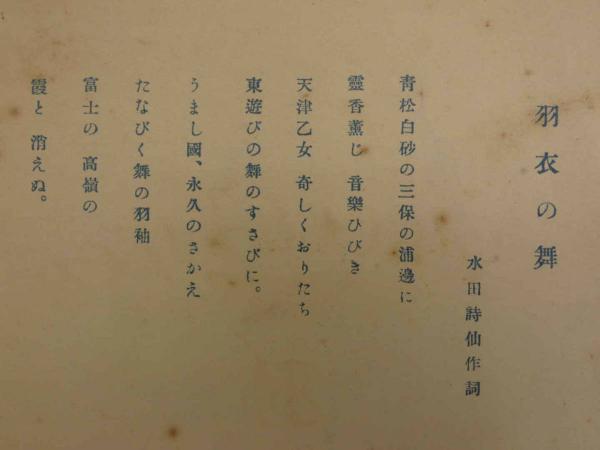 羽衣の舞
水田詩仙作詞
靑松白砂の三保の浦邊に
靈香薰じ 音樂ひびき
天津乙女 奇しくおりたち
東遊びの舞のすさびに。
うまし國、永久のさかえ
たなびく舞の羽袖
富士の 高嶺の
霞と 消えぬ。